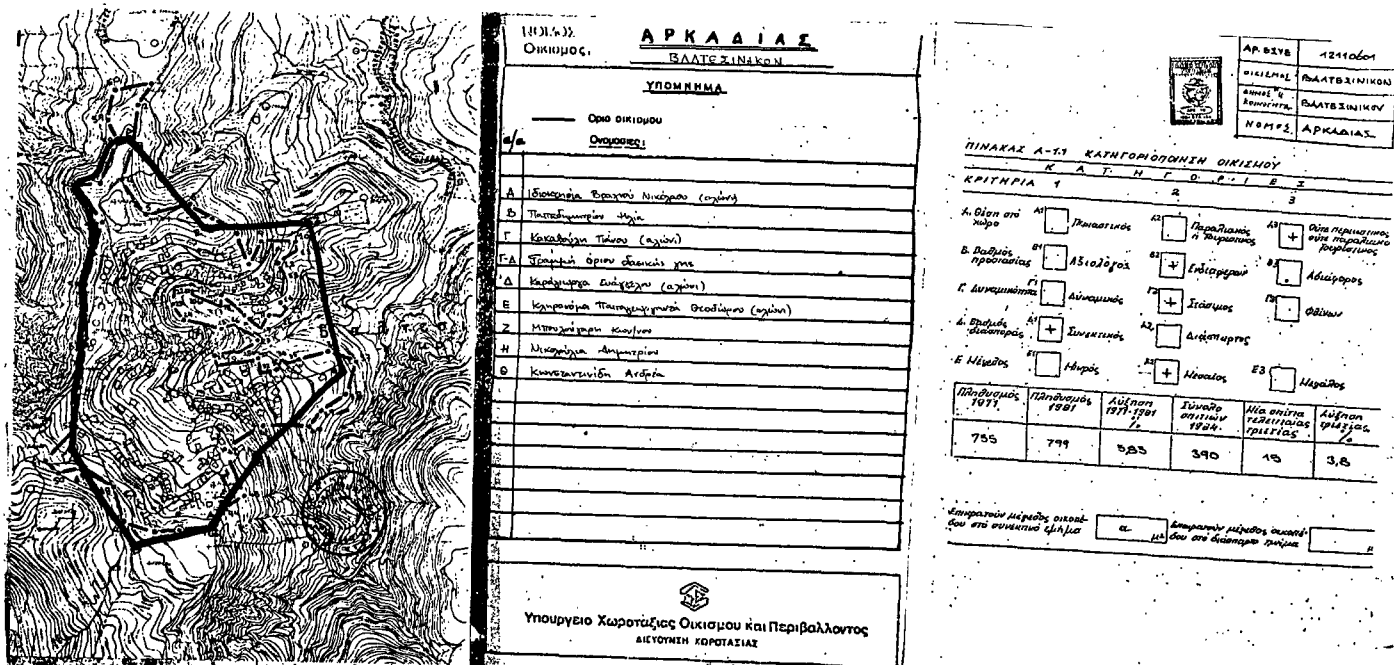 ΝΟΜΟΣ ΑΡΚΑΔΙΑΣ
Οικισμος: ΒΛΑΤΕΣΙΝΙΚΟΝ
ΥΠΟΜΝΗΜΑ
Οριο οικισμου
α/α Ονομασιες:
Α Ιδιοκτησία Νικολάου (αλώνι)
Β Παπαδημητρίου Ηλία
Γ Πάνου (αλώνι)
Γ-Δ Γραμμή όριον δασικής γης
Δ Καράγιωργα Ευάγγελου (αλώνι)
Ε Κληρονόμοι Θεοδώρου (αλώνι)
Ζ Κων/νου
Η Δημητρίου
Θ Κωνσταντινίδη Ανδρέα
Υπουργειο Χωροταξιας Οικισμου και Περιβαλλοντος
ΔΙΕΥΘΥΝΣΗ ΧΩΡΟΤΑΞΙΑΣ
ΑΡ. ΕΣΥΕ 12110601
ΟΙΚΙΣΜΟΣ ΒΛΑΤΕΣΙΝΙΚΟΝ
ΔΗΜΟΣ ή ΚΟΙΝΟΤΗΤΑ ΒΛΑΤΕΣΙΝΙΚΟΥ
ΝΟΜΟΣ ΑΡΚΑΔΙΑΣ
ΠΙΝΑΚΑΣ Α-1.1 ΚΑΤΗΓΟΡΙΟΠΟΙΗΣΗ ΟΙΚΙΣΜΟΥ
ΚΑΤΗΓΟΡΙΕΣ
ΚΡΙΤΗΡΙΑ 1 2 3
Α. Θέση στό χώρο Α1 Περιαστικός Α2 Παραλιακός ή Τουριστικός Α3 + Ούτε περιαστικός ούτε παραλιακός τουριστικός
Β. Βαθμός προστασίας Β1 Αξιόλογος Β2 + Ενδιαφέρων Β3 Αδιάφορος
Γ. Δυναμικότητα Γ1 Δυναμικός Γ2 + Στάσιμος Γ3 Φθίνων
Δ. Βαθμός διασποράς Δ1 + Συνεκτικός Δ2 Διάσπαρτος
Ε. Μέγεθος Ε1 Μικρός Ε2 + Μεσαίος Ε3 Μεγάλος
Πληθυσμός 1971 Πληθυσμός 1981 Αύξηση 1971-1981 % Σύνολο σπιτιών 1984 Νέα σπίτια τελευταίας τριετίας Αύξηση τριετίας %
755 799 5,83 390 15 3,8
Επικρατούν μέγεθος οικοπέδου στό συνεκτικό τμήμα α μ² Επικρατούν μέγεθος οικοπέδου στό διάσπαρτο τμήμα μ